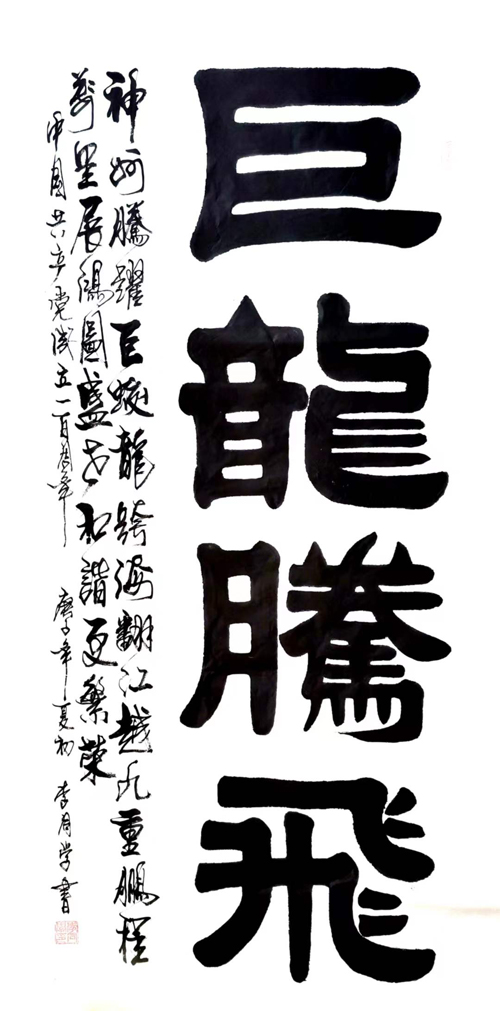 巨龍騰飛
神州騰躍巨蛟龍跨海翻江越九重鵬程
萬里展鴻圖盛世和諧更繁榮
中国共产党成立一百周年 庚子年夏初 李月学書